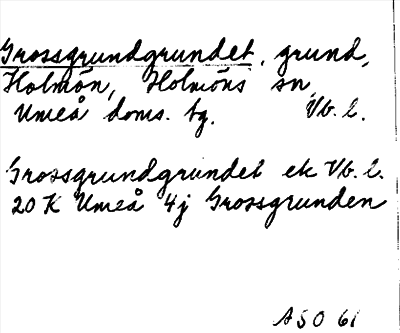 Grossgrundgrundet, grund,
Holmön, Holmöns sn,
Umeå doms. tg. Vb. l.
Grossgrundgrundet ek Vb. l.
20 K Umeå 4j Grossgrunden
ASO 61